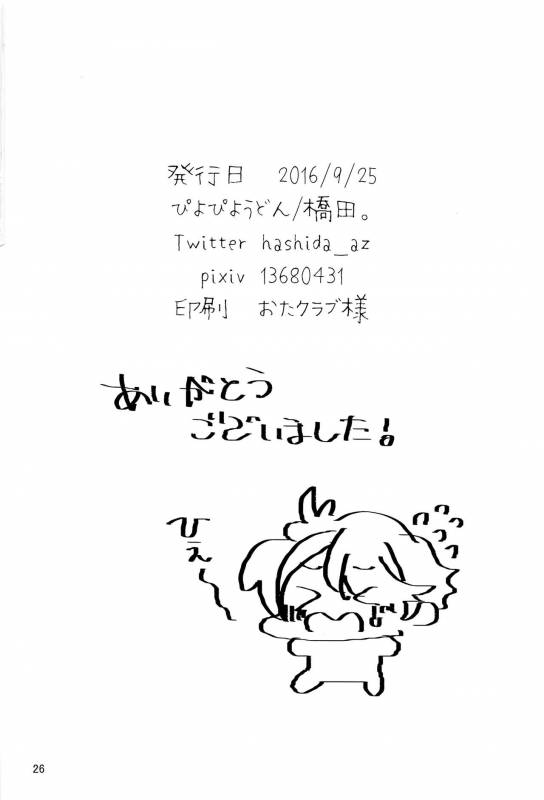 発行日 2016/9/25
ぴよぴようどん/橋田。
Twitter hashida_az
pixiv 13680431
印刷 おたクラブ様
ありがとう
ございました!
ひぇ〜
26